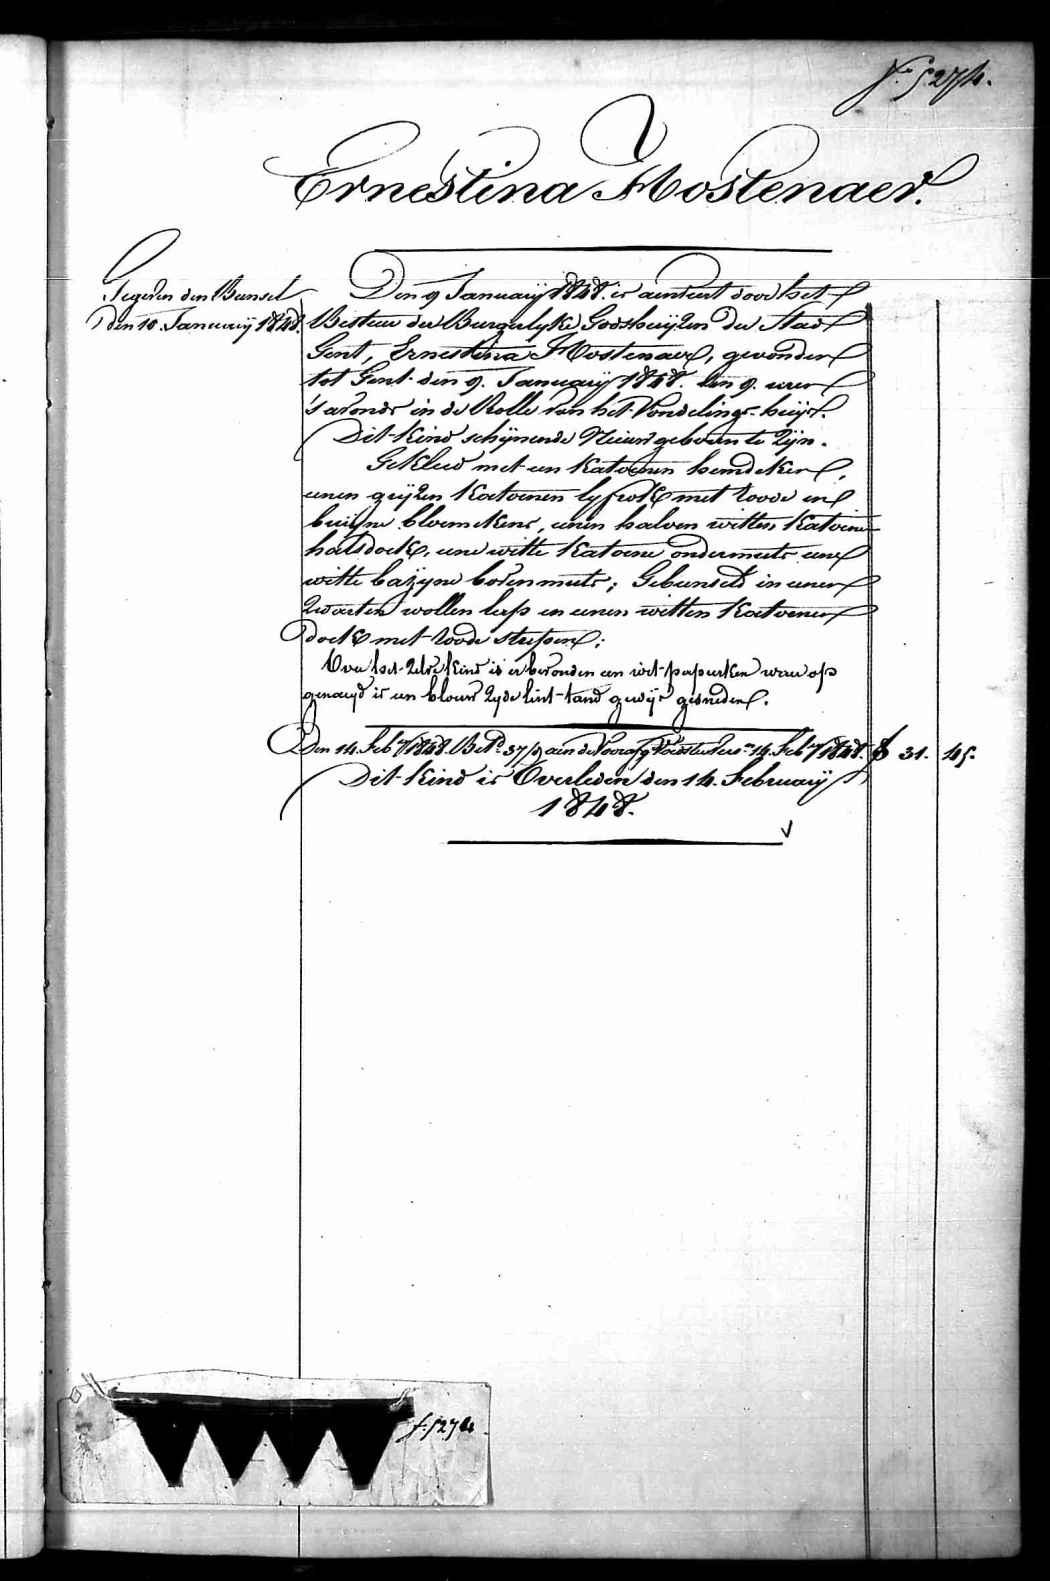 f. 5274.
Ernestina Mostenaer.
Gegeven den Bunsel
den 10. January 1848.
Den 9 January 1848. is aenveert door het
Bestuer der Burgerlyke Godshuyzen der Stad
Gent, Ernestina Mostenaer, gevonden
tot Gent den 9. January 1848. ten 9. uren
's avonds in de Rolle van het Vondelings-huys.
Dit Kind schynende Nieuwgeboren te Zyn.
Gekleed met een Katoenen hemdeken,
eenen gryzen Katoenen lyfrok met roode en
bruyne bloemekens, eenen halven witten Katoenen
halsdoek, eene witte Katoene ondermuts eene
witte bazyne bovenmuts; Gebunseld in eenen
Zwarten wollen lap en eenen witten Katoenen
doek met roode strepen;
Over het Zelve kind is er bevonden een wit papierken waer op
genaeyd is een blouw Zyde lint-tand gewys gesneden.
Den 14. Feb.ry 1848. Bet.d 37/9 aen de Voorafg. Voester 14. Feb.ry 1848. f 31. 45.
Dit Kind is Overleden den 14. February
1848.
f. 5274